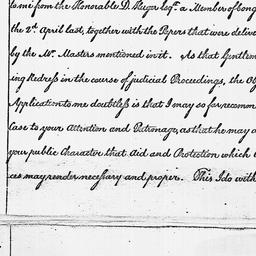 to me from the Honorable D. Dwyer Esqr. a Member of Cong
the 2d. April last, together with the Papers that were deliv
by the Mr. Masters mentioned in it. As that Gentlem
ing redress in the course of judicial Proceedings, the Ob
Application to me doubtless is that I may so far recomm
Case to your Attention and Patronage, as that he may o
your public Character that Aid and Protection which t
ces may render necessary and proper. This I do with